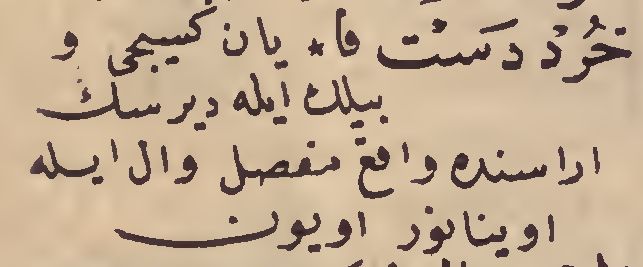 خُرْدْ دَسْت فا * يان كسيجى و
بيلك ايله ديرسك
اراسنده واقع مفصل وال ايله
اوينانور اويون